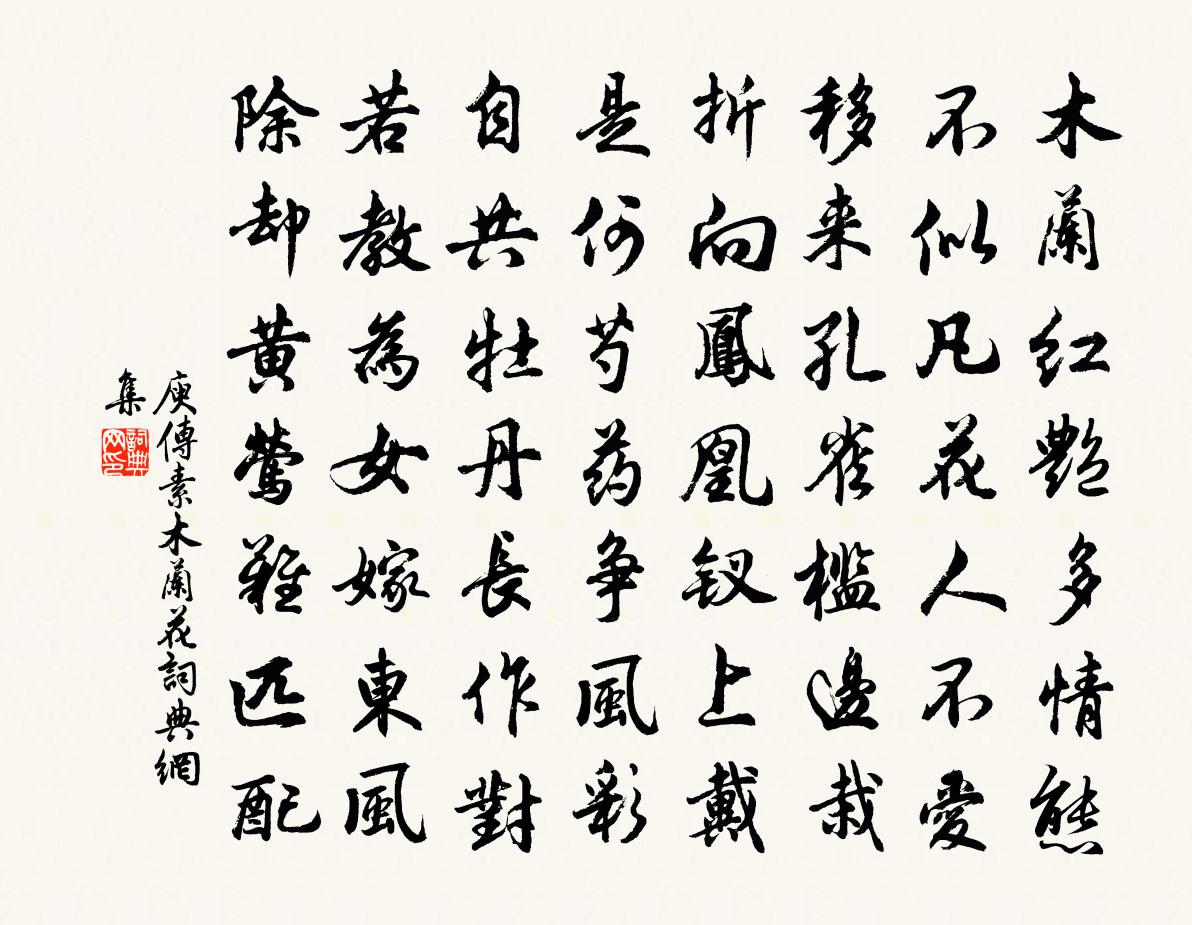 木蘭红艷多情態
不似凡花人不愛
移来孔雀檻邊栽
折向鳳凰釵上戴
是何芍药争風彩
自共牡丹長作對
若教為女嫁東風
除却黄鶯難匹配
庾傳素木蘭花詞典網
集
詞典
网印